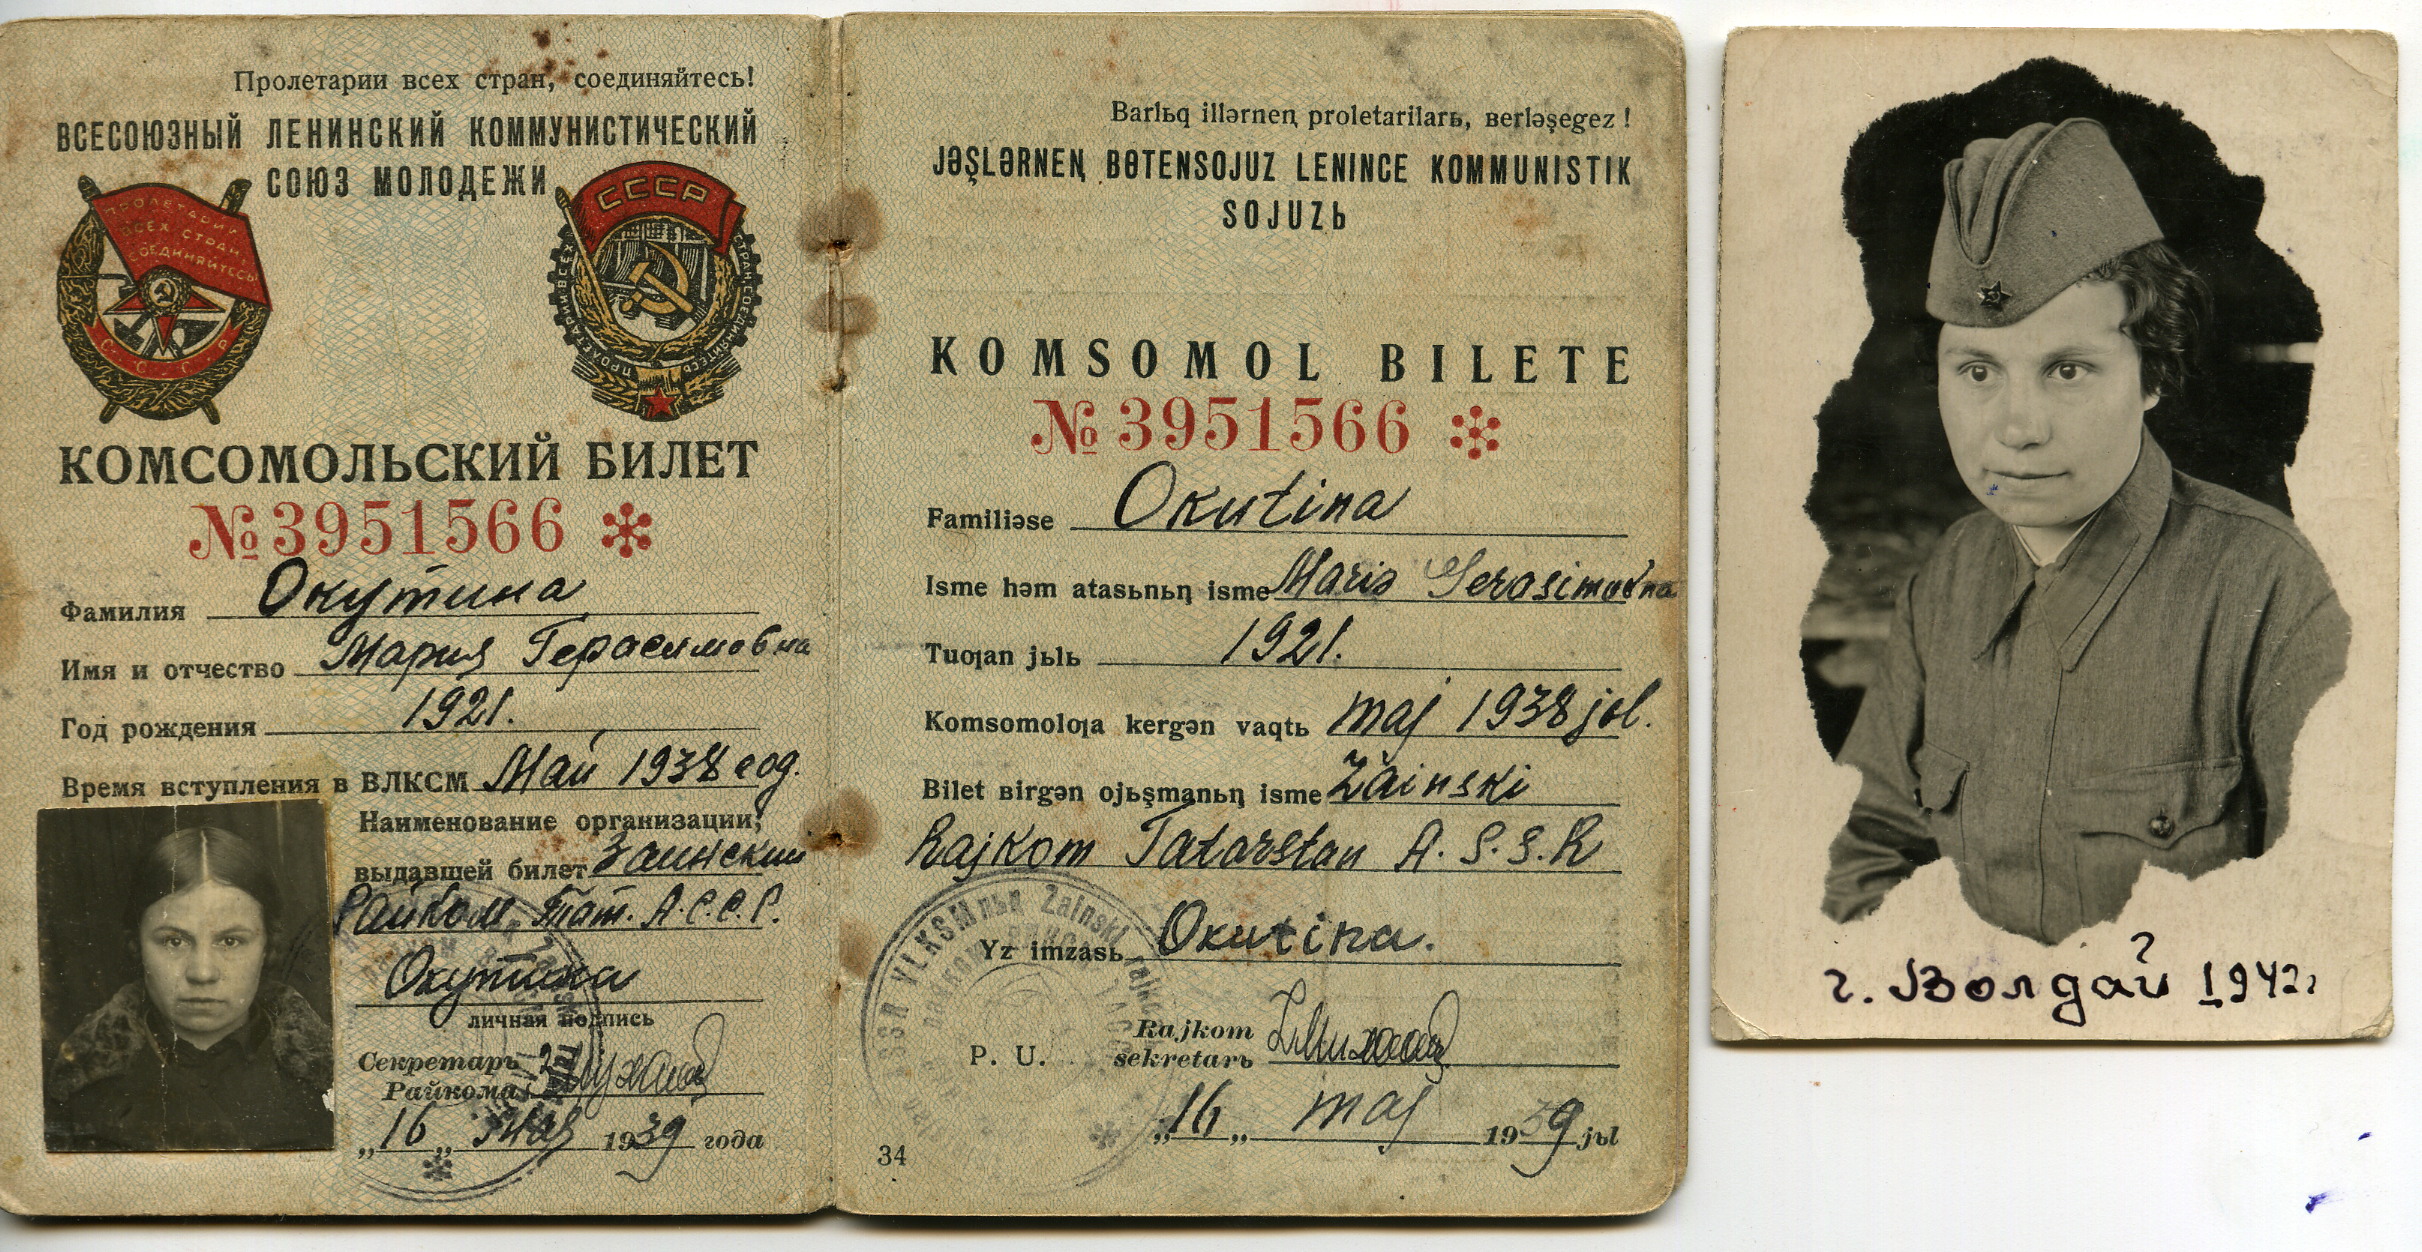 Пролетарии всех стран, соединяйтесь!
ВСЕСОЮЗНЫЙ ЛЕНИНСКИЙ КОММУНИСТИЧЕСКИЙ
СОЮЗ МОЛОДЕЖИ
ПРОЛЕТАРИИ
ВСЕХ СТРАН,
СОЕДИНЯЙТЕСЬ
СССР
СССР
ПРОЛЕТАРИИ ВСЕХ СТРАН, СОЕДИНЯЙТЕСЬ
КОМСОМОЛЬСКИЙ БИЛЕТ
№ 3951566
Фамилия Окутина
Имя и отчество Мария Герасимовна
Год рождения 1921.
Время вступления в ВЛКСМ Май 1938 год.
Наименование организации,
выдавшей билет Заинский
Райком Тат. А.С.С.Р.
Окутина
личная подпись
Секретарь
Райкома
„16„ Мая 1939 года
Barlьq illərneꞑ proletarilarь, ʙerləşegez!
JƏŞLƏRNEꞐ BƟTENSOJUZ LENINCE KOMMUNISTIK
SOJUZЬ
KOMSOMOL BILETE
№ 3951566
Familiəse Okutina
Isme həm atasьnьꞑ isme Mariə Gerasimovna
Tuƣan jьlь 1921.
Komsomolƣa kergən vaqtь maj 1938 jьl.
Bilet ʙirgən ojьşmanьꞑ isme Zainski
Rajkom Tatarstan A.S.S.R
Yz imzasь Okutina.
P. U.
Rajkom
sekretarь
„16„ maj 1939 jьl
34
г. Волдай 1942г